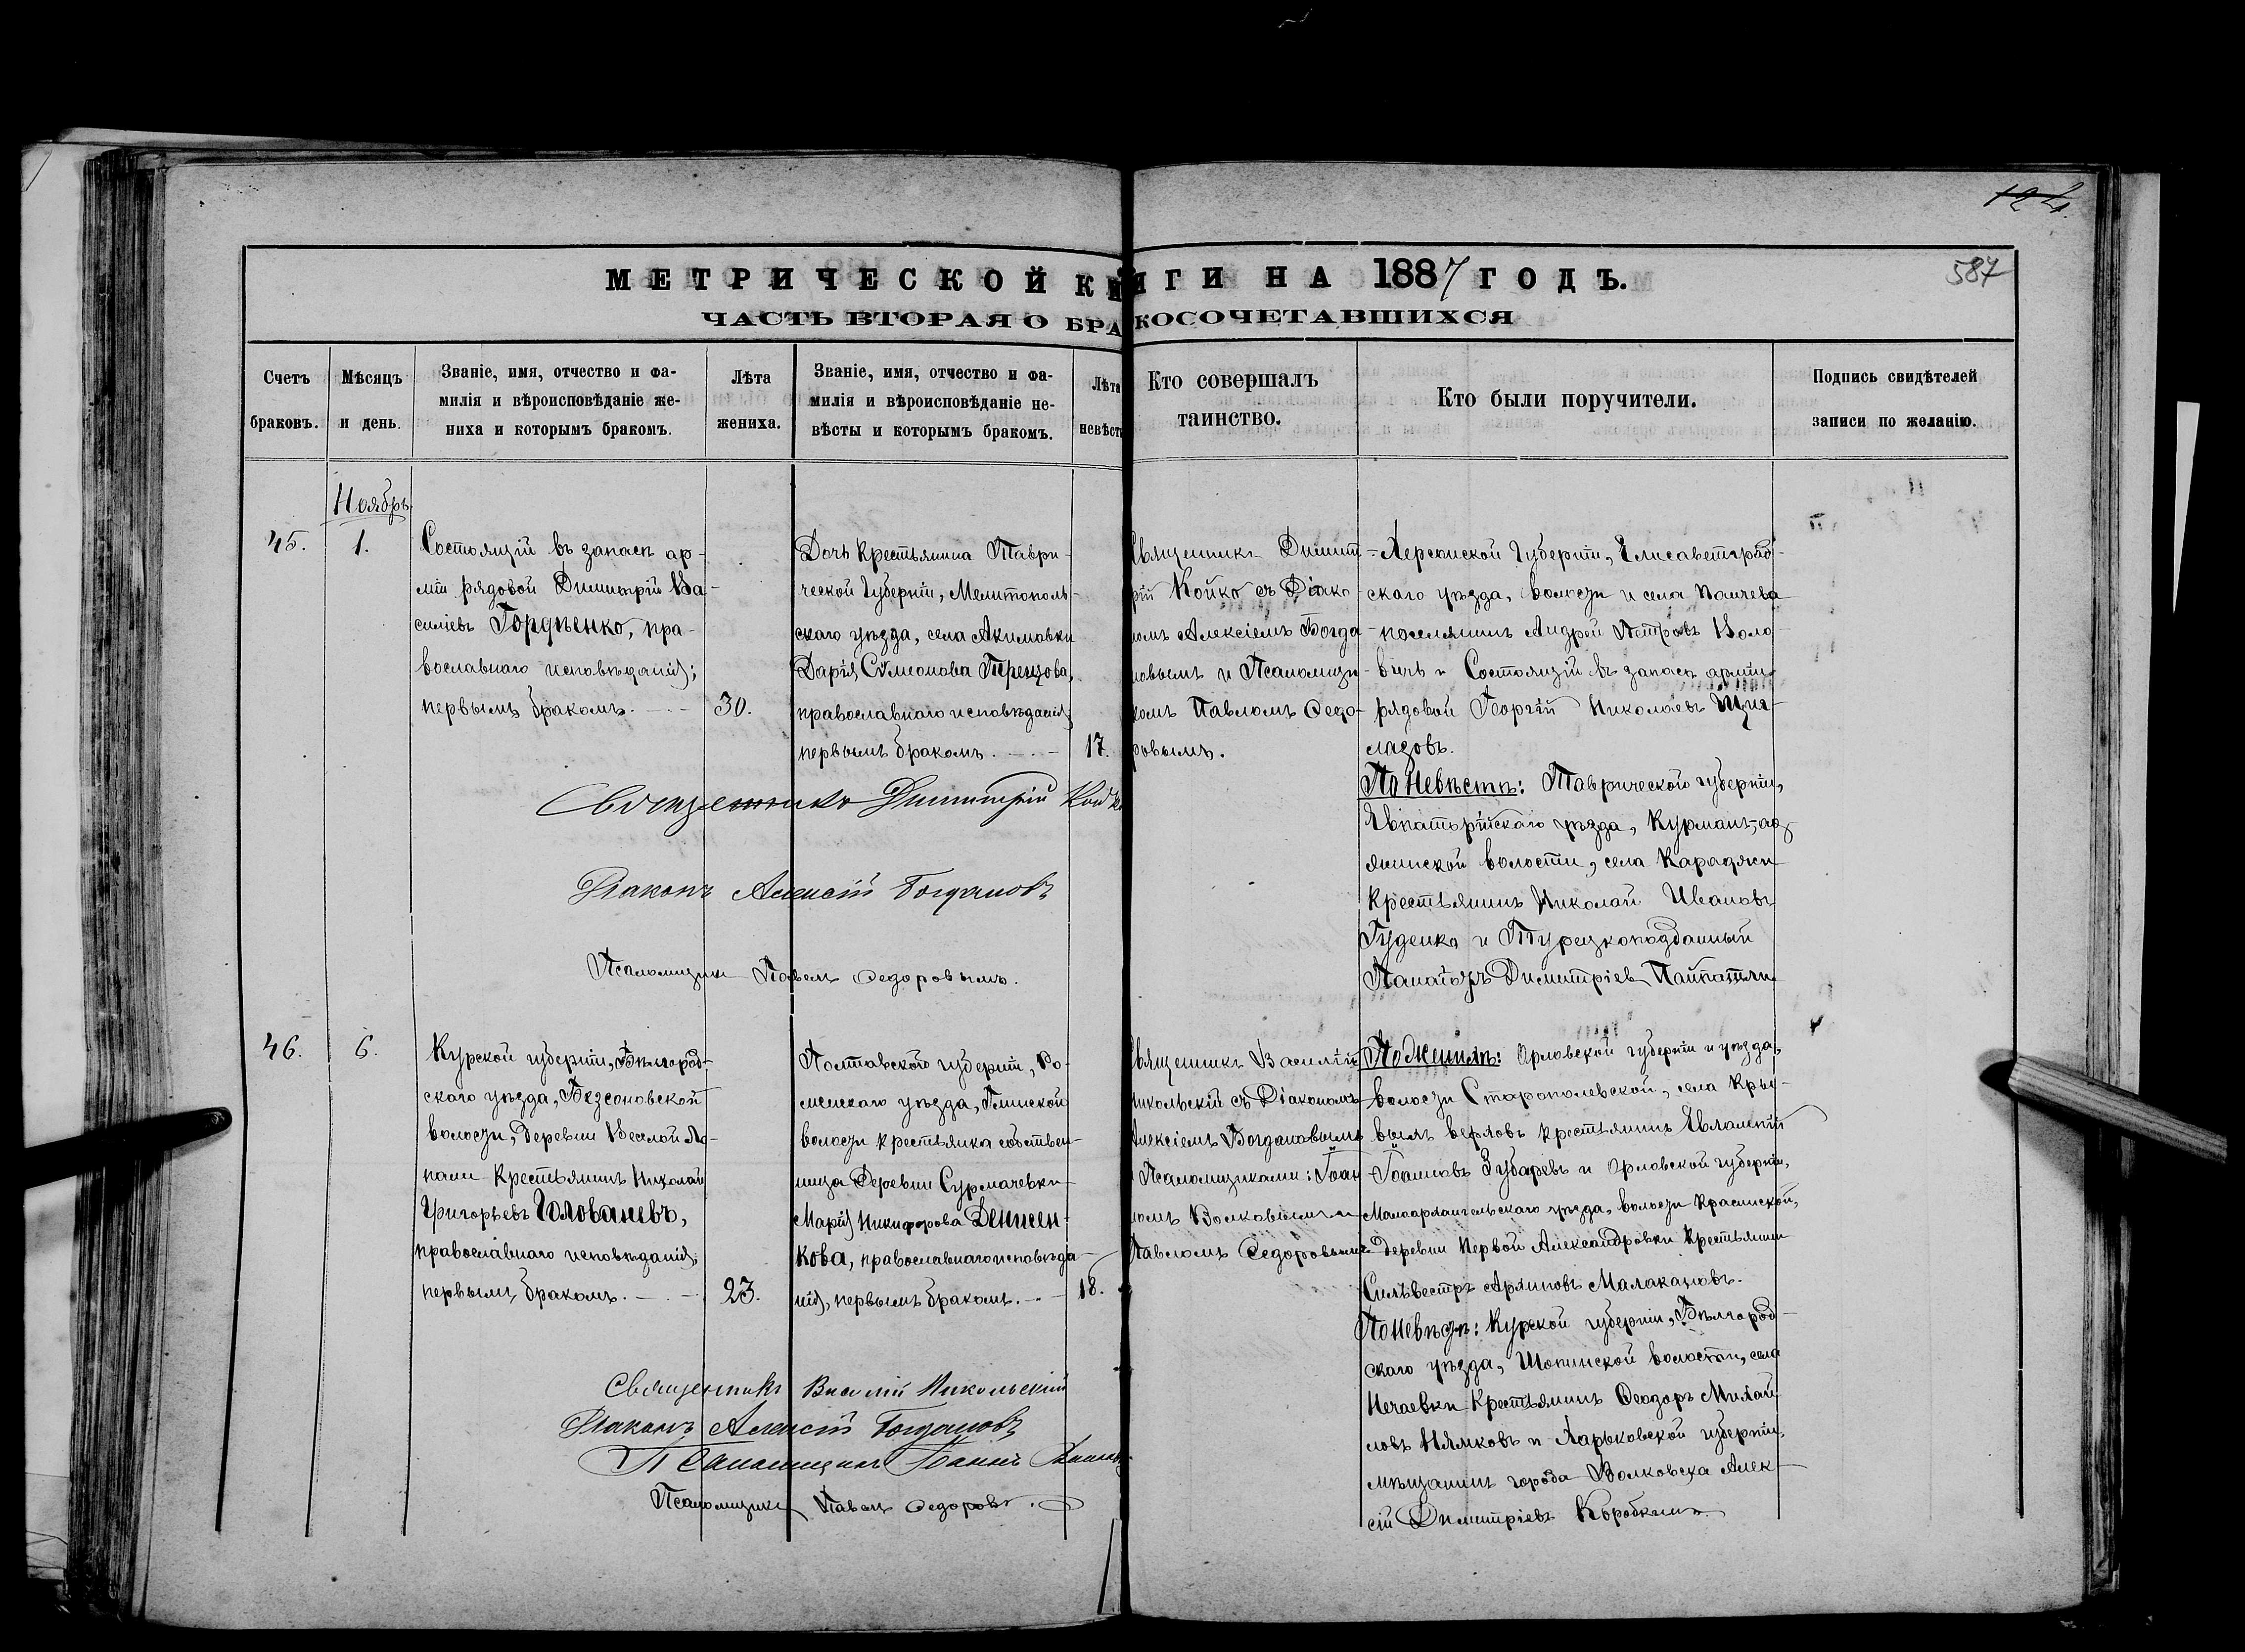 124.
587
МЕТРИЧЕСКОЙ КНИГИ НА 1887 ГОДЪ.
ЧАСТЬ ВТОРАЯ О БРАКОСОЧЕТАВШИХСЯ
Счетъ
браковъ.
Мѣсяцъ
и день.
Званіе, имя, отчество и фа-
милія и вѣроисповѣданіе же-
ниха и которымъ бракомъ.
Лѣта
жениха.
Званіе, имя, отчество и фа-
милія и вѣроисповѣданіе не-
вѣсты и которымъ бракомъ.
Лѣта
невѣсты
Кто совершалъ
таинство.
Кто были поручители.
Подпись свидѣтелей
записи по желанію.
Ноябрь
45.
1.
Состоящій въ запасѣ ар-
міи рядовой Димитрій Ва-
силіевъ Гордѣенко, пра-
вославнаго исповѣданія;
первымъ бракомъ.
30.
Дочь крестьянина Таври-
ческой Губерніи, Мелитополь-
скаго уѣзда, села Акимовки
Дарія Сѵмеонова
православнаго исповѣданія,
первымъ бракомъ.
17.
Священникъ Димит-
рій Койко съ Діако-
номъ Алексіемъ Богда-
новымъ и Псаломщи-
комъ Павломъ Ѳедо-
ровымъ.
Херсонской Губерніи, Елисаветград-
скаго уѣзда, волости и села Панчева
поселянинъ Андрей Петровъ Воло-
вичъ и Состоящій въ запасѣ арміи
рядовой Георгій Николаевъ
По Невѣстѣ: Таврической губерніи,
Евпаторійскаго уѣзда, Курманъ-ад-
жинской волости, села Караджи
Крестьянинъ Николай Ивановъ
Гуденко и Турецкоподданный
Димитріев
Священникъ Димитрій Койко
Діаконъ Алексій Богдановъ
Псаломщикъ Павелъ Ѳедоровымъ.
46.
6.
Курской губерніи, Бѣлгород-
скаго уѣзда, Безсоновской
волости, Деревни Веселой Ло-
пани крестьянинъ Николай
Григорьевъ Голованевъ,
православнаго исповѣданія;
первымъ бракомъ.
23.
Полтавской губерніи, Ро-
менскаго уѣзда, Глинской
волости крестьянка собствен-
ница Деревни Сурмачевки
Марія Никифорова Денисен-
кова, православнаго исповѣда-
нія, первымъ бракомъ.
18.
Священникъ Василій
Никольскій съ Діакономъ
Алексіемъ Богдановымъ
Псаломщиками: Іоан-
номъ Волковымъ и
Павломъ Ѳедоровымъ
По Женихѣ: Орловской губерніи и уѣзда,
волости Старопольевской, села
верховъ крестьянинъ Евлампій
Іоанновъ Зубаревъ и Орловской губерніи,
Малоархангельскаго уѣзда, волости Красинской,
деревни Первой Александровки Крестьянинъ
Сильвестръ Малакановъ.
По Невѣстѣ: Курской губерніи, Бѣлгород-
скаго уѣзда, Шопинской волости, села
Нечаевки Крестьянинъ Ѳеодоръ Михай-
ловъ Нямковъ и Харьковской губерніи,
мѣщанинъ города Алек-
сій Димитріевъ Коробкинъ
Священникъ Василій Никольскій
Діаконъ Алексій Богдановъ
Псаломщикъ Іоаннъ
Псаломщикъ Павелъ Ѳедоровъ.